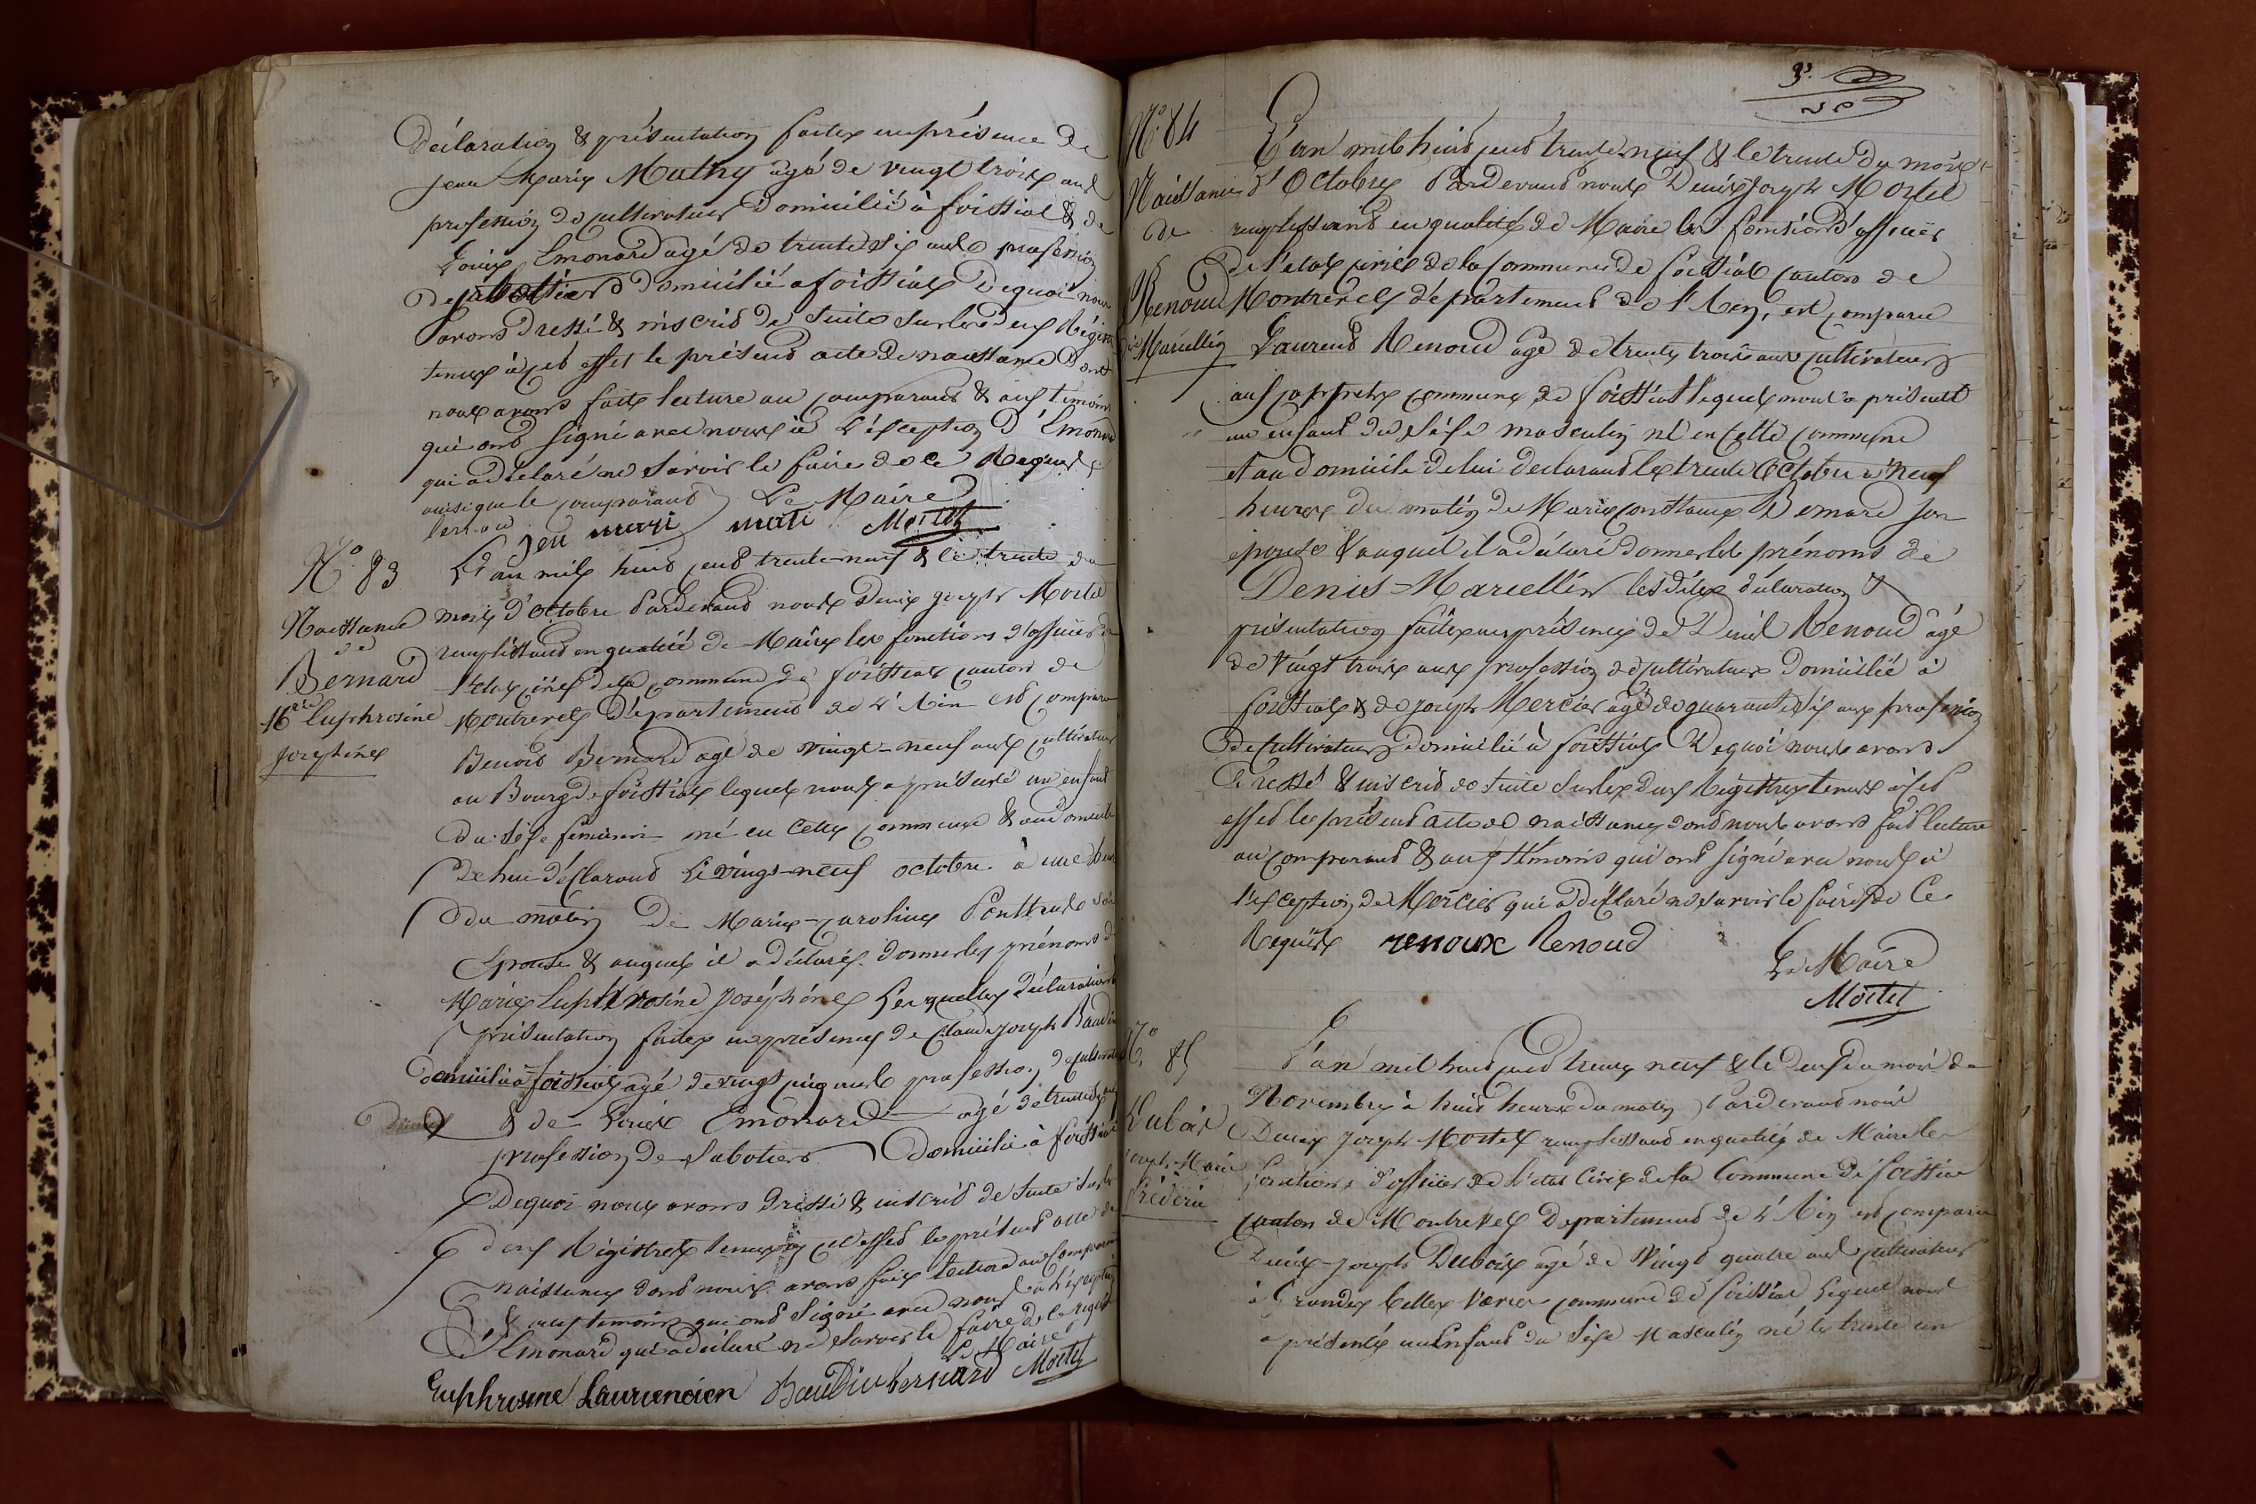 Déclaration & présentation faites en présence de
jean Marie Mathy agé de vingt trois ans
profession de cultivateur domicilié à foissiat & de
Louis Emonard agé de trente six ans profession
de sabottier domicilié a foissiat De quoi nous
avons dressé & inscrit de suite sur les deux Régistres
tenus à cet effet le présent acte de naissance dont
nous avons faite lecture au comparant & aux témoins
qui ont signé avec nous à l'éxception d'Emonard
qui a déclaré ne savoir le faire de ce Requis
ainsi que le comparant Le Maire
jen mari mati Mortel
N° 83
Naissance
de
Bernard
Mie Euphrosine
Josephine
L'an mil huit cent trente-neuf & le trente du
mois d'Octobre Pardevant nous Denis joseph Mortel
remplissant en qualité de Maire les fonctions d'officier de
l'etat civil de la commune de foissiat canton de
Montrevel département de l'Ain est comparu
Benoit Bernard agé de vingt-neuf ans cultivateur
au Bourg de foissiat lequel nous a présenté un enfant
du séxe feminin né en cette commune & au domicile
de lui déclarant le vingt-neuf octobre à une heure
du matin de Marie-caroline son
Epouse & auquel il a déclaré donner les prénoms de
Marie Euphrosine Joséphine Lesquelles déclaration &
présentation faites en présence de Claude joseph Baudin
domicilié a foissiat agé de vingt cinq ans profession de cultivateur
& de Louis Emonard agé de trente six ans
profession de Sabotier Domicilié à foissiat
De quoi nous avons dressé & inscrit de suite sur les
deux Régistres tenus à cet effet le présent acte de
naissance dont nous avons fait lecture au comparant
& aux témoins qui ont signé avec nous à l'éxception
d'Emonard qui a déclaré ne savoir le faire de ce requis
Le Maire
Euphrosine Laurencien Baudin bernard Mortel
N° 84
Naissance
de
Renoud
Dis Marcellin
L'an mil huit cent trente-neuf & le trente du mois
d'Octobre Pardevant nous Denis Joseph Mortel
remplissant en qualité de Maire les fonctions d'officier
de l'etat civil de la commune de foissiat canton de
Montrevel département de l'Ain, est comparu
Laurent Renoud agé de trente trois ans cultivateur
commune de foissiat lequel nous a présenté
un enfant du séxe masculin né en cette commune
et au domicile de lui declarant le trente Octobre à neuf
heures du matin de Marie constance Bernard son
epouse & auquel il a déclaré donner les prénoms de
Denis-Marcellin lesdites déclaration &
présentation faites en présence de Denis Renoud agé
de vingt trois ans profession de cultivateur domicilié à
foissiat & de joseph Mercier agé de quarante six ans profession
de cultivateur domicilié à foissiat De quoi nous avons
dressé & inscrit de suite sur les deux Régistres tenus à cet
effet le présent acte de naissance dont nous avons fait lecture
au comparant & aux témoins qui ont signé avec nous à
l'exception de Mercier qui a déclaré ne savoir le faire de ce
Requis renoux Renoud
Le Maire
Mortel
N° 85
Dubois
joseph-Marie
Frédéric
L'an mil huit cent trente neuf & le deux du mois de
Novembre à huit heures du matin pardevant nous
Denis joseph Mortel remplissant en qualité de Maire les
fonctions d'officier de l'etat civil de la commune de foissiat
canton de Montrevel Departement de l'Ain est comparu
Denis-joseph Dubois agé de vingt quatre ans cultivateur
à commune de foissiat lequel nous
a présenté un Enfant du séxe Masculin né le trente un